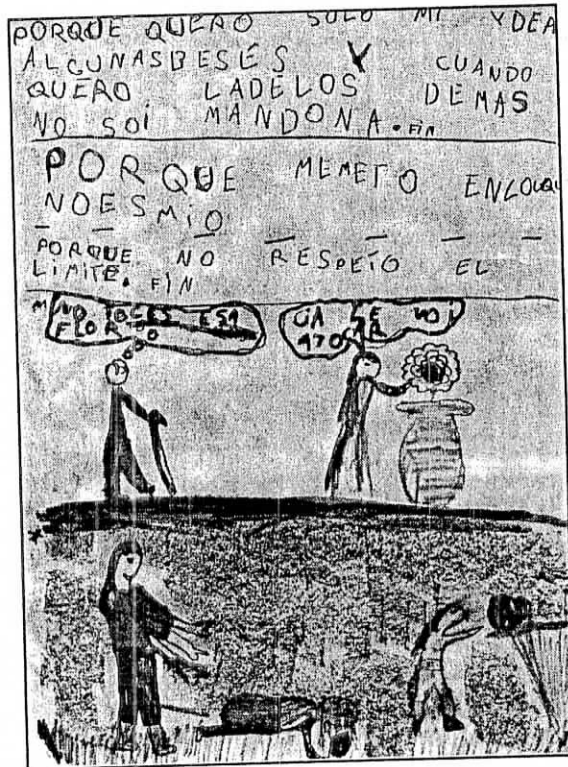 PORQUE QUERO SOLO MI YDEA
ALGUNASBESES Y CUANDO
QUERO LADELOS DEMAS
NO SOI MANDONA. FIN
PORQUE MEMETO
NOESMIO
PORQUE NO RESPETO EL
LIMITE. FIN
NO TOCES ESA
FLOR